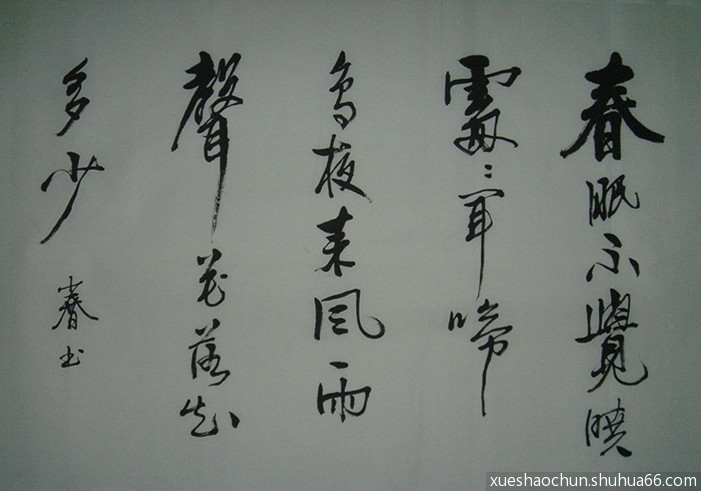 春眠不覺曉
處々聞啼
鳥夜来風雨
聲花落知
多少
春书
xueshaochun.shuhua66.com